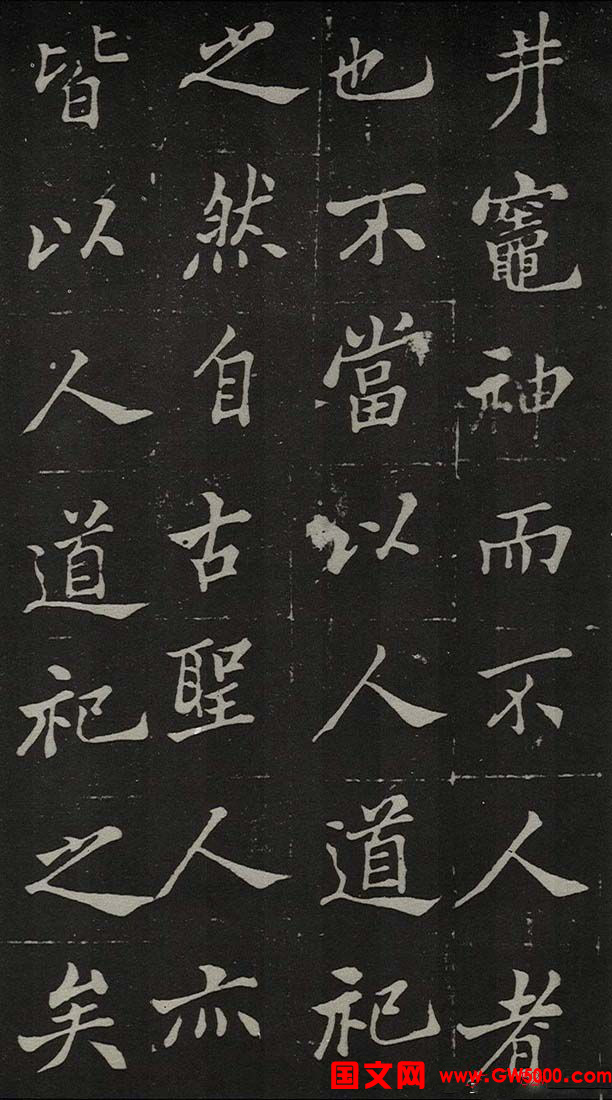 井竈神而不人者
也不當以人道祀
之然自古聖人亦
皆以人道祀之矣
国文网 www.GW5000.com